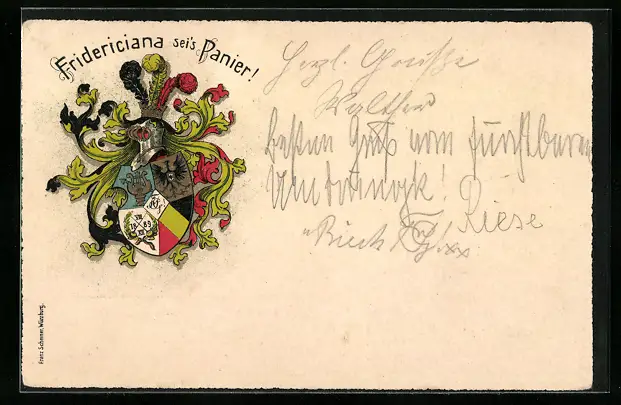 Fridericiana sei's Panier!
Herzl. Grüße
Walther
besten Gruß vom furchtbaren
Riese
Franz Scheiner, Würzburg.